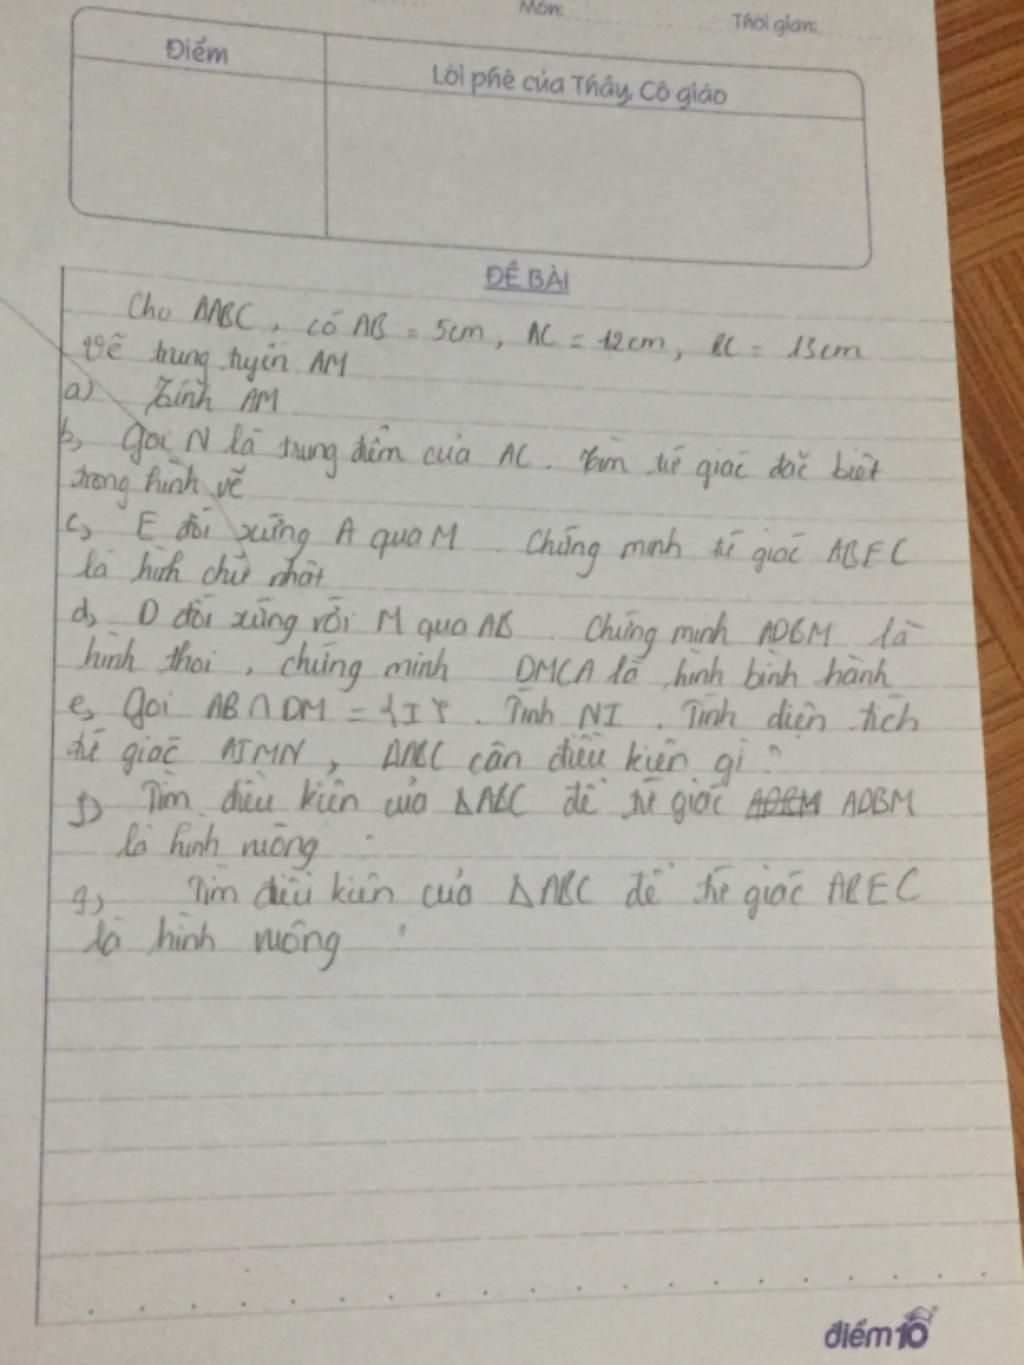 Môn:
Thời gian:
Điểm
Lời phê của Thầy, Cô giáo
ĐỀ BÀI
Cho ΔABC, có AB = 5cm, AC = 12cm, BC = 13cm
vẽ trung tuyến AM
a) Tính AM
b, Gọi N là trung điểm của AC. Tìm tứ giác đặc biệt
trong hình vẽ
c, E đối xứng A qua M. Chứng minh tứ giác ABEC
là hình chữ nhật
d, D đối xứng với M qua AB. Chứng minh ADBM là
hình thoi, chứng minh DMCA là hình bình hành
e, Gọi AB ∩ DM = {I}. Tính NI. Tính diện tích
tứ giác AIMN, ΔABC cần điều kiện gì?
f) Tìm điều kiện của ΔABC để tứ giác ADBM
là hình vuông
g, Tìm điều kiện của ΔABC để tứ giác ABEC
là hình vuông
điểm 10